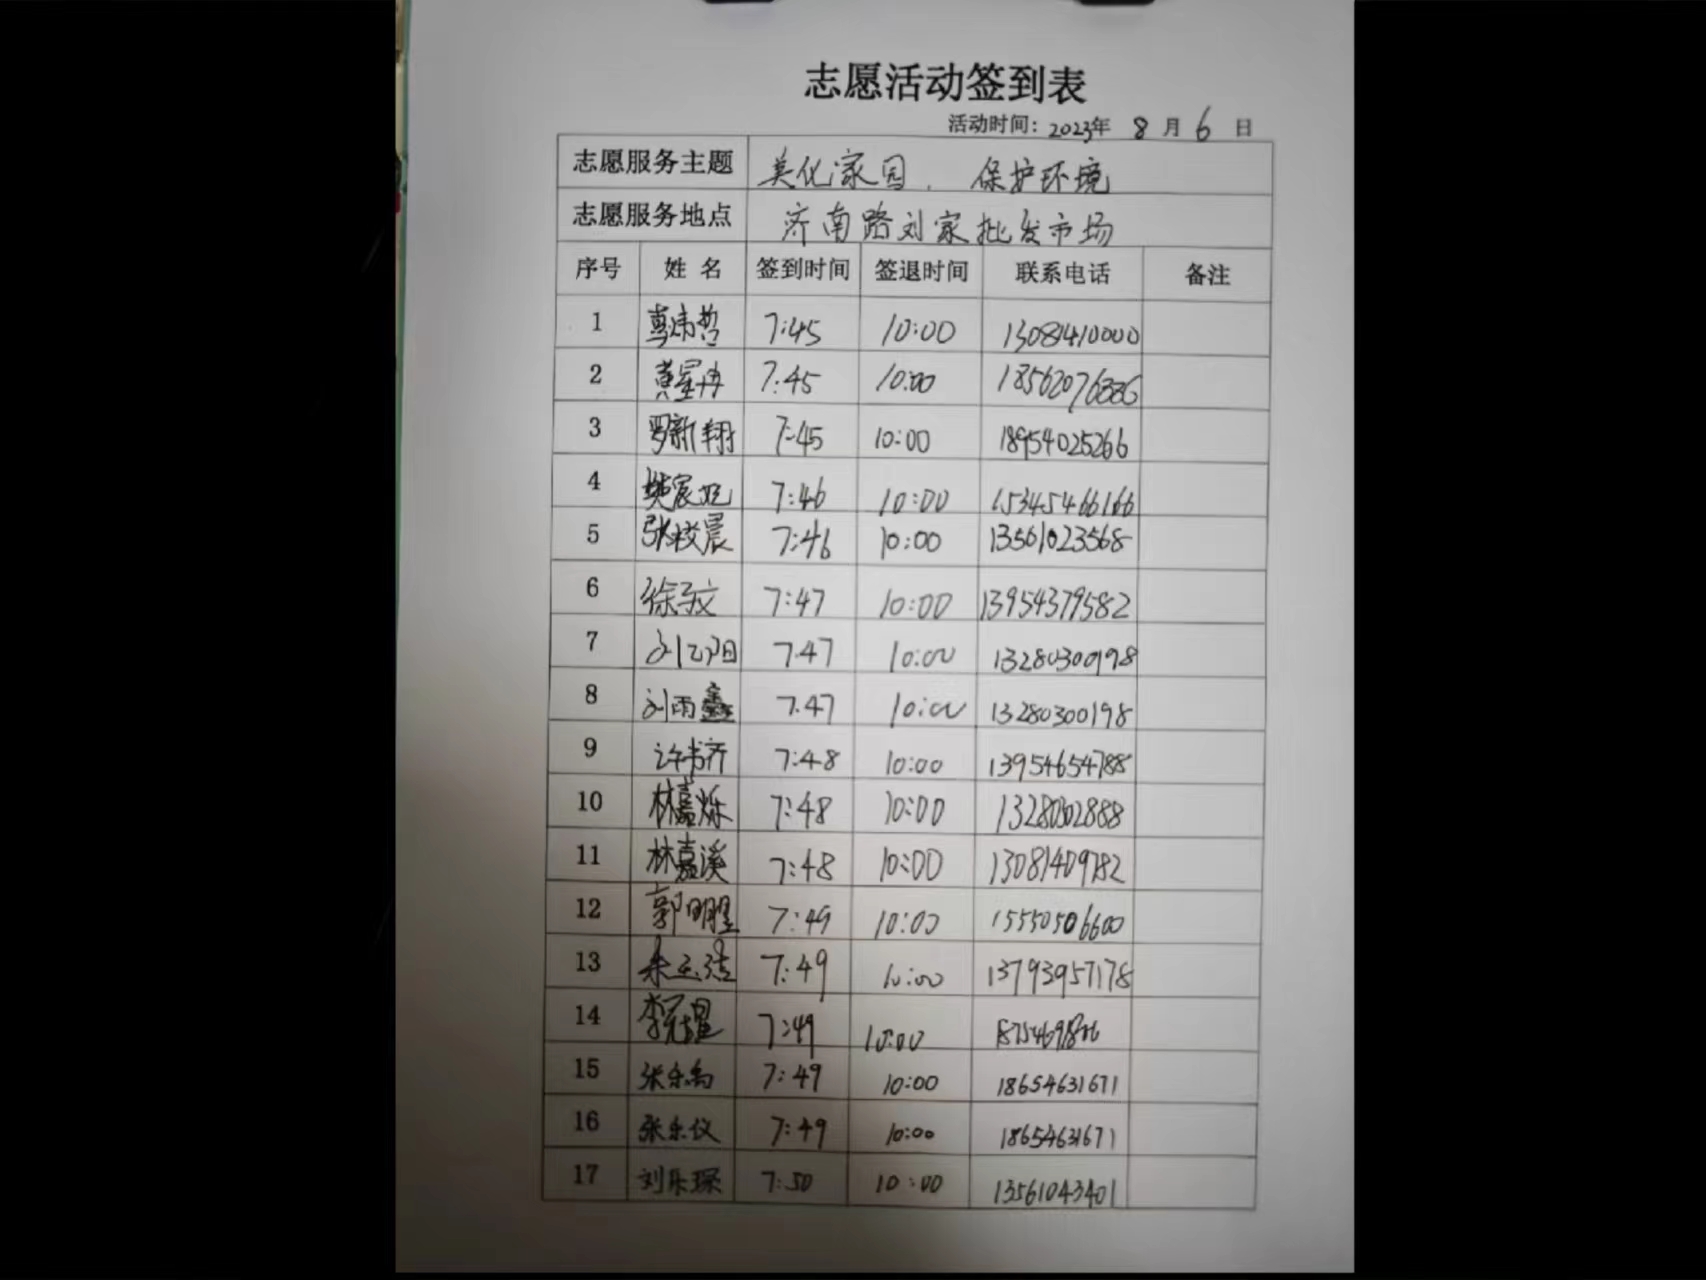 志愿活动签到表
活动时间：2023年 8 月 6 日
志愿服务主题 美化家园、保护环境
志愿服务地点 济南路刘家批发市场
序号 姓名 签到时间 签退时间 联系电话 备注
1 7:45 10:00 13081410000
2 7:45 10:00
3 罗新翔 7:45 10:00 18954025266
4 7:46 10:00 15345466166
5 7:46 10:00 13561023568
6 徐子文 7:47 10:00 13954379582
7 7:47 10:00 13280300198
8 刘雨鑫 7:47 10:00 13280300198
9 许书齐 7:48 10:00 13954654788
10 林嘉烁 7:48 10:00 1328302888
11 林嘉溪 7:48 10:00 13081409782
12 7:49 10:00 15550506600
13 7:49 10:00 13793957178
14 7:49 10:00
15 张乐 7:49 10:00 18654631671
16 张乐仪 7:49 10:00 18654631671
17 刘乐琛 7:50 10:00 13561043401